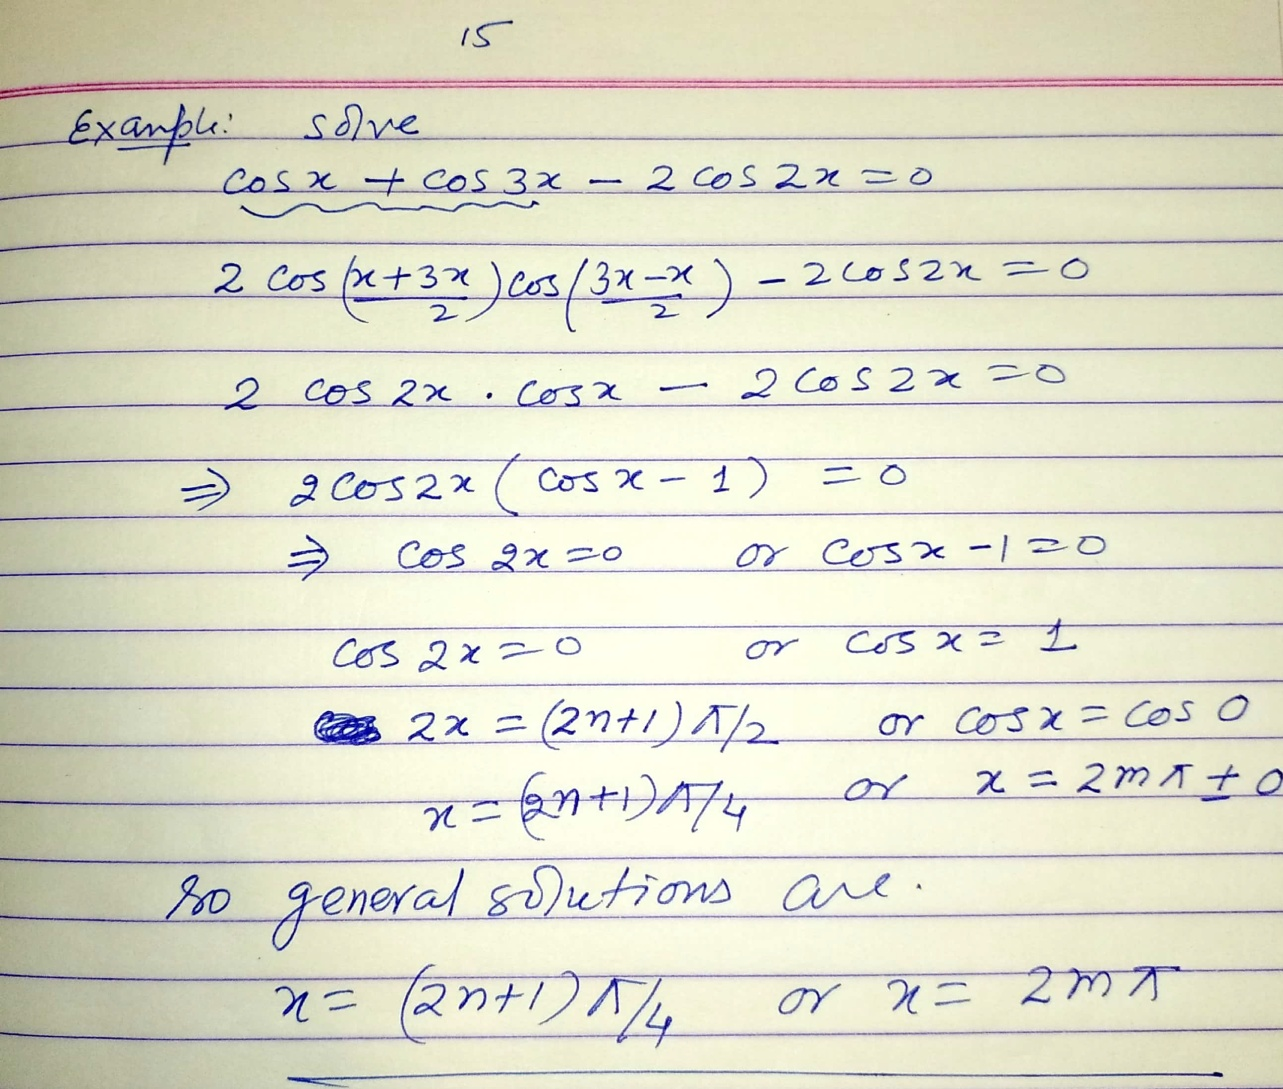 15
Example: solve
cos x + cos 3x - 2 cos 2x = 0
2 cos (x+3x/2) cos (3x-x/2) - 2 cos 2x = 0
2 cos 2x . cos x - 2 cos 2x = 0
⇒ 2 cos 2x (cos x - 1) = 0
⇒ cos 2x = 0 or cos x - 1 = 0
cos 2x = 0 or cos x = 1
2x = (2n+1) π/2 or cos x = cos 0
x = (2n+1) π/4 or x = 2mπ ± 0
so general solutions are.
x = (2n+1) π/4 or x = 2mπ